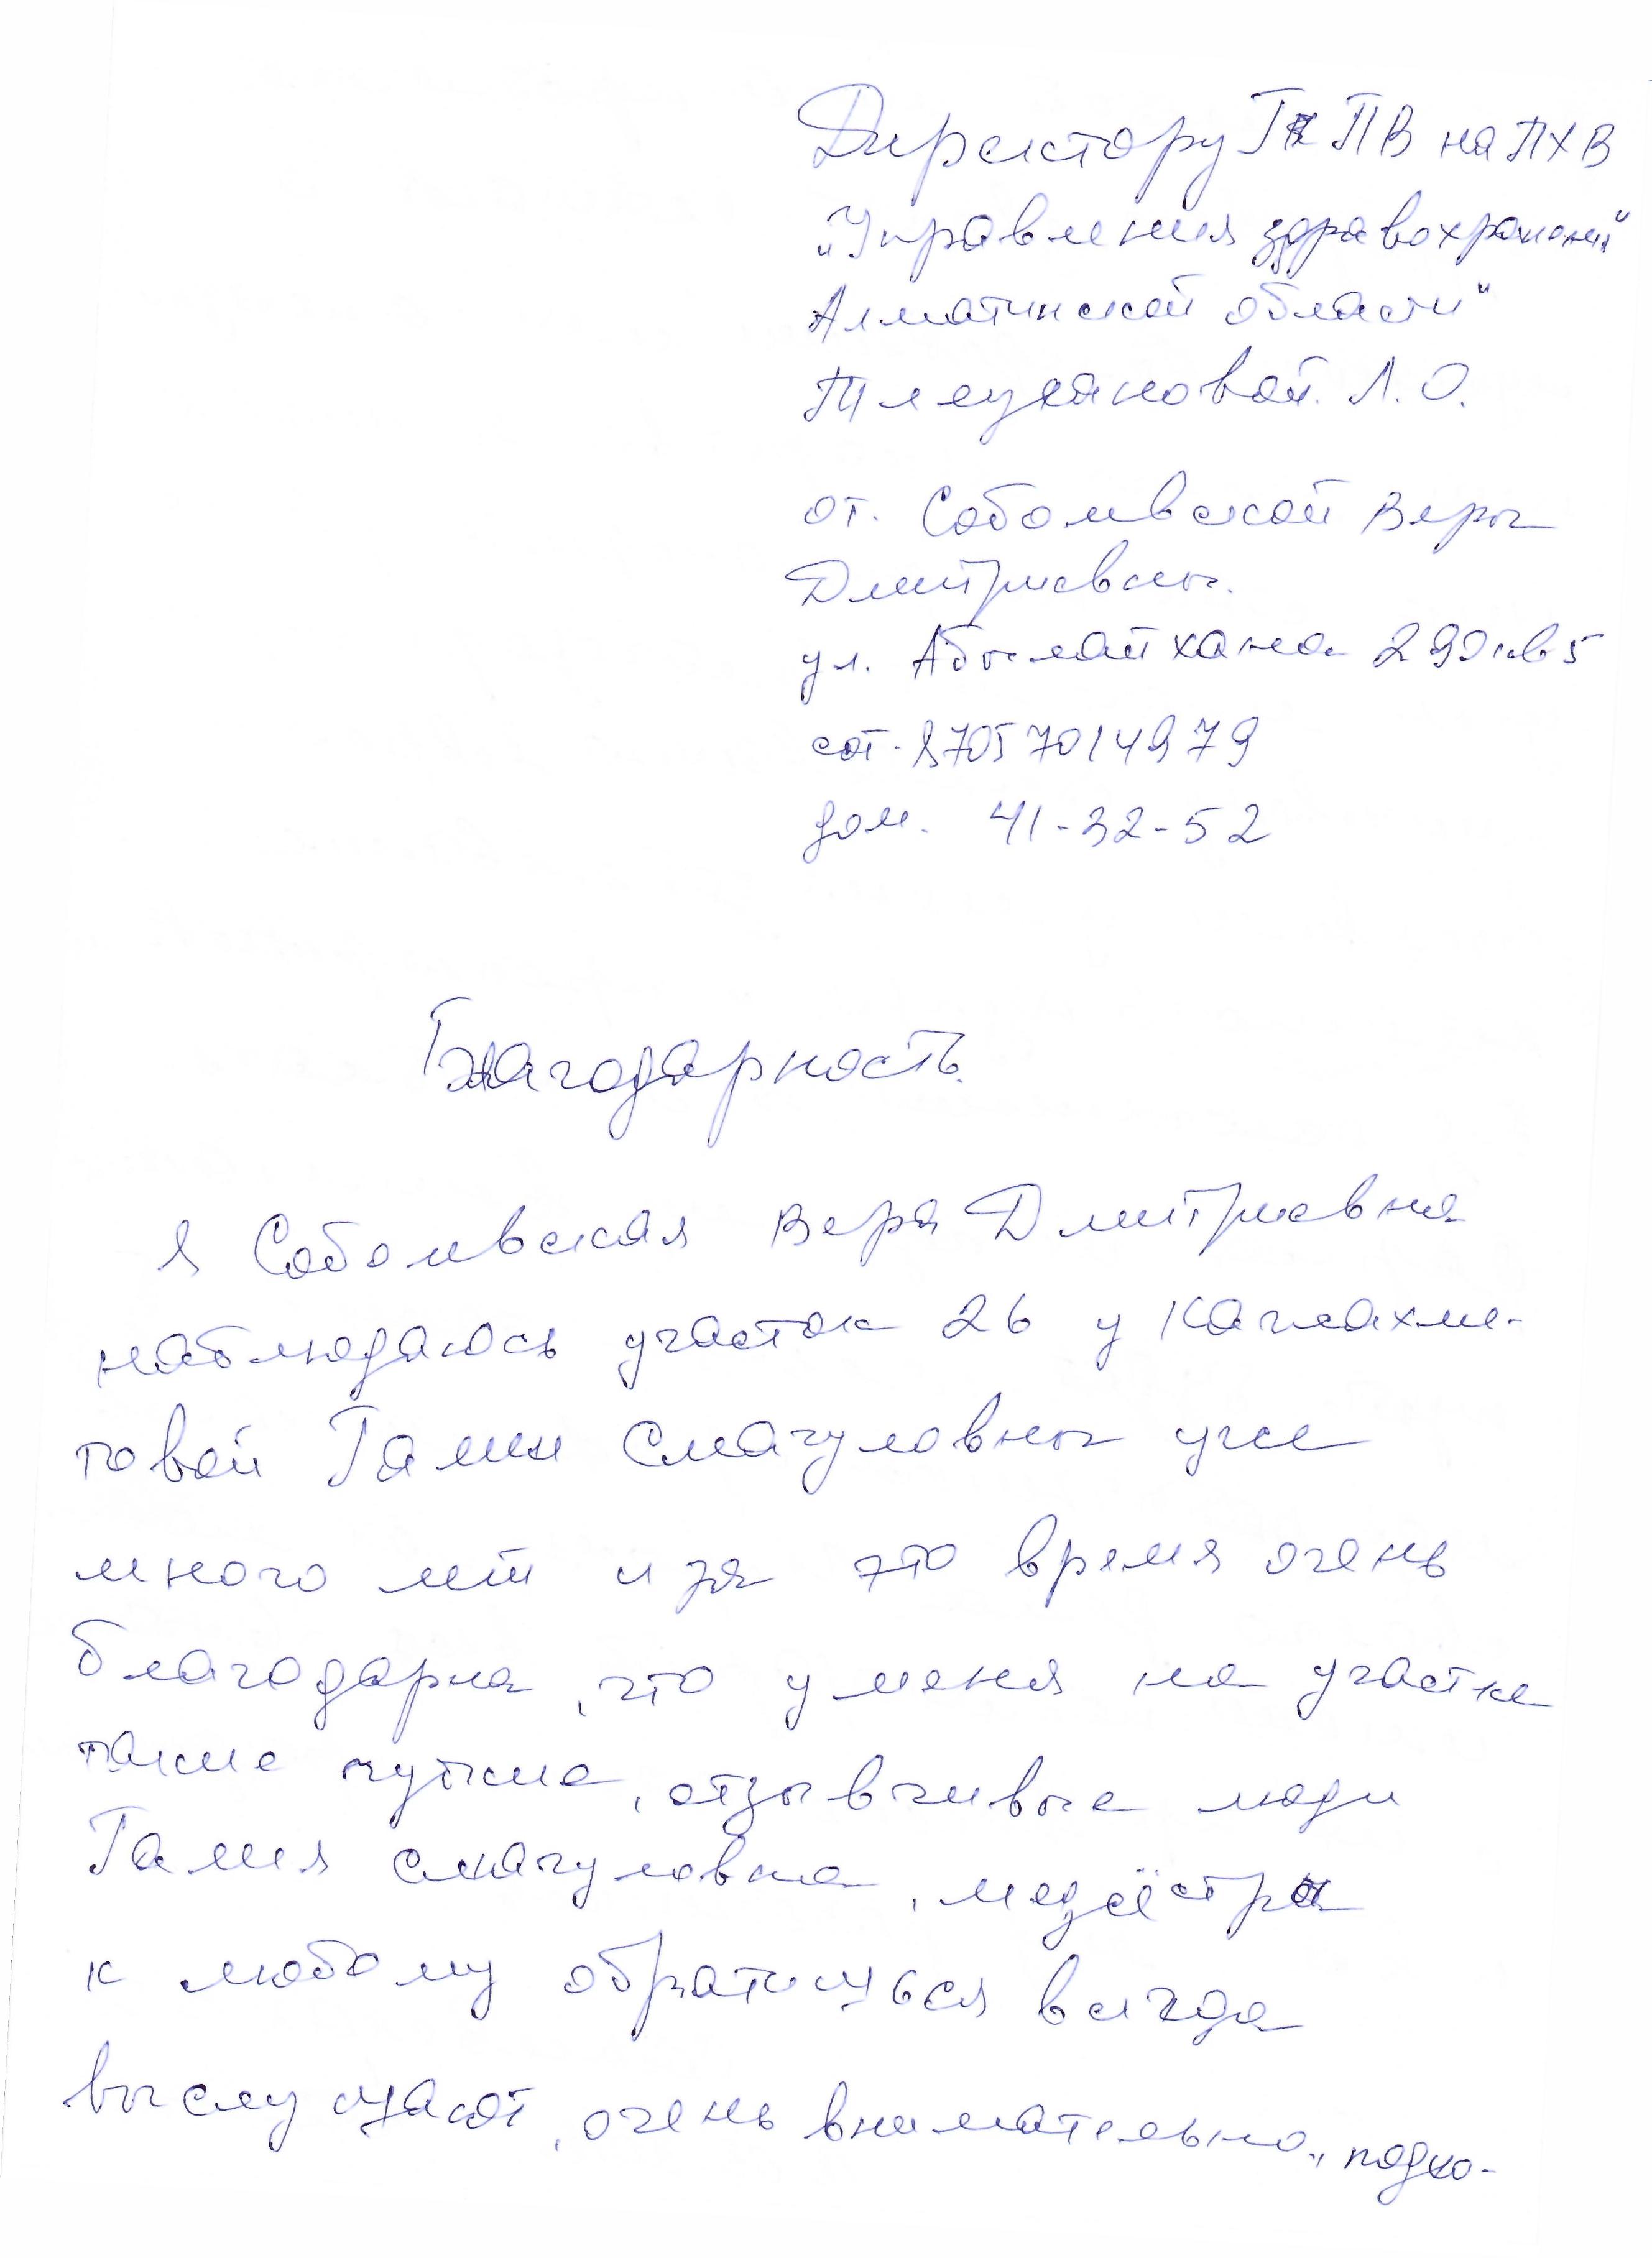 Директору ГК ПВ на ПХВ
"Управления здравохранени"
Алматинской области"
Тлеужановой. Л. О.
от. Соболевской Веры
Дмитриевны.
ул. Абылай хана 299 кв 5
сот. 87057014979
дом. 41-32-52
Благодарность.
Я Соболевская Вера Дмитриевна
наблюдаюсь участок 26 у
товой Галии Смагуловны уже
много лет и за это время очень
благодарна, что у меня на участке
такие чуткие, отзывчивые люди
Галия Смагуловна, медсёстра
к любому обратишься всегда
выслушают, очень внимательно, подхо-